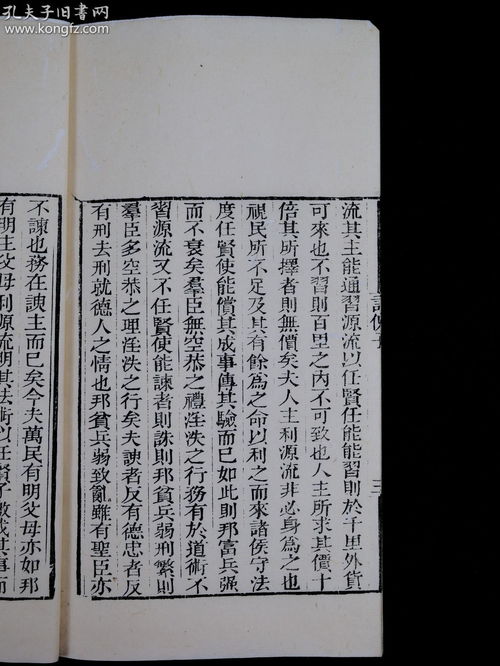 孔夫子旧书网
www.kongfz.com
流其主能通習源流以任賢任能能習則於千里外貨
可來也不習則百里之内不可致也人主所求其價十
倍其所擇者則無價矣夫人主利源流非必身爲之也
視民所不足及其有餘爲之命以利之而來諸侯守法
度任賢使能償其成事傳其驗而已如此則邦富兵强
而不衰矣羣臣無空恭之禮淫泆之行務有於道術不
習源流又不任賢使能諫者則誅則邦貧兵弱刑繁則
羣臣多空恭之理淫泆之行矣夫諛者反有德忠者反
有刑去刑就德人之情也邦貧兵弱致亂雖有聖臣亦
三
不諫也務在諛主而已矣今夫萬民有明父母亦如邦
有明主父母利源流明其法術以任賢子